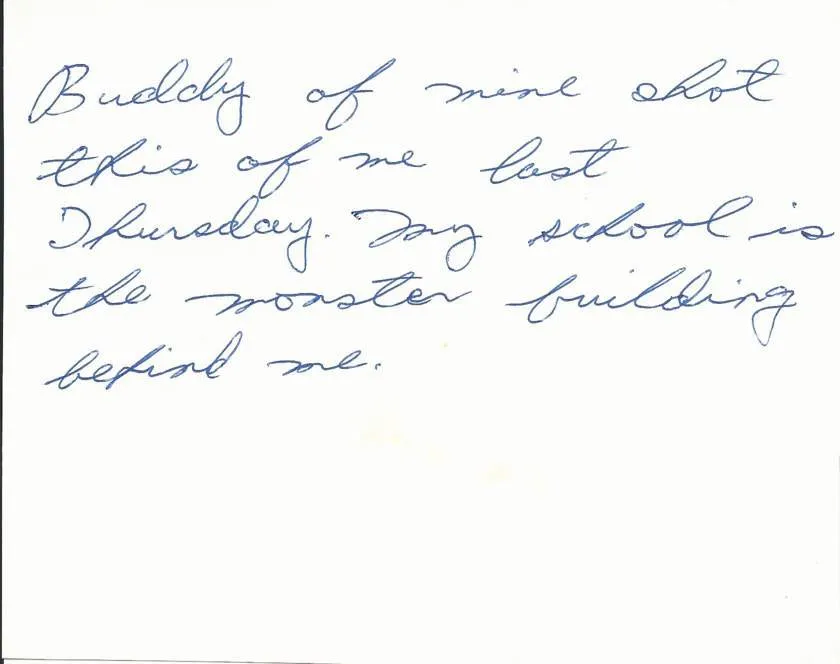 Buddy of mine shot
this of me last
Thursday. My school is
the monster building
behind me.